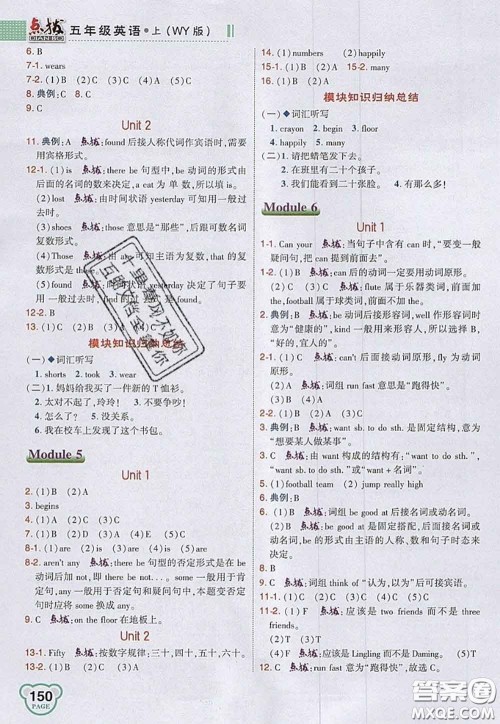 点拨 五年级英语·上(WY版)
DIANBO
6. B
7-1. wears
7-2. (1)B (2)C (3)A
8. C 典例:C
9. C
Unit 2
11. 典例:A 点拨:found 后接人称代词作宾语时,需要
用宾格形式。
12-1. (1)is 点拨:there be 句型中,be 动词的形式由
后面的名词的数来决定,a cat 为单数,所以填 is。
(2)lost 点拨:由时间状语 yesterday 可知用一般过
去时。
(3)shoes 点拨:those 意思是“那些”,后跟可数名词
复数形式。
12-2. (1)A
复数的形式是
(2)A 点拨: yesterday 决定了句子要
用一般过去时,find 的过去式是
13. (1)A (2)C
模块知识归纳总结
(一)◆词汇听写
1. shorts 2. took 3. wear
(二)1. 妈妈给我买了一件新的 T 恤衫。
2. 太对不起了,玲玲! 3. 不要动!
4. 怎么了? 5. 没关系。
6. 我在校车上发现了这个书包。
Module 5
Unit 1
2. (1)B (2)A
3. begins
4. (1)B (2)A (3)D (4)E (5)C
8-1. (1)are (2)is (3)are
8-2. aren't any 点拨:there be 句型的否定形式是在 be
动词后加 not,即 there be not... some 一般用于肯
定句,any 一般用于否定句和疑问句中,本题变否定
句时应将 some 改成 any。
9. C 点拨:on the floor 在地板上。
Unit 2
13-1. Fifty 点拨:按数字规律:三十,四十,五十,六十。
13-2. (1)B (2)C (3)A
150
PAGE
15-1. (1)numbers (2)happily
15-2. (1)B (2)A
16. (1)B (2)A (3)C
模块知识归纳总结
(一)◆词汇听写
1. crayon 2. begin 3. floor
4. happily 5. many
(二)1. 请把蜡笔发下去。
2. 在班里有二十个孩子。
3. 我们能看到二十张脸。 4. 有那么多!
Module 6
Unit 1
1-1. Can your 点拨:当句子中含有 can 时,“要变一般
疑问句,把 can 提到前面去”。
1-2. (1)B 点拨:can 后的动词一定要用动词原形。
(2)C 点拨:flute 属于乐器类词,前面加定冠词
the,football 属于球类词,前面不用 the。
2. 典例:B 点拨:well 作形容词形容身体状况时意
为“健康的”,kind 一般用来形容人,所以选择 B,
“好的,好意的”。
2-1. (1)B 点拨:can't 后面接动词原形,fly 为动词
原形。
(2)A 点拨:词组 run fast 意思是“跑得快”。
3. 典例:B 点拨:want sb. to do sth. 是固定结构,意为
“想要某人做某事”。
4. (1)B 点拨:want 构成的结构有:“want to do sth. ”
“want sb. to do sth. ”或“want + 名词”。
5. (1)football team (2)jump really high
6. 典例:B
7. (1)B 点拨:be good at 后接名词或动名词。
(2)C 点拨:be good at 是固定搭配,后面接动词或动
名词,be 的形式由主语的人称、数和句子时态决定。
8. C
9. (1)C 点拨:词组 think of “认为,以为”后可接宾语。
10. (1)F 点拨:应该是 two friends 而不是 three
friends。
(2)T (3)T
(4)F 点拨:应该是 Lingling 而不是 Daming. (5)T
12. C 点拨:
答案圈
MXQE.COM